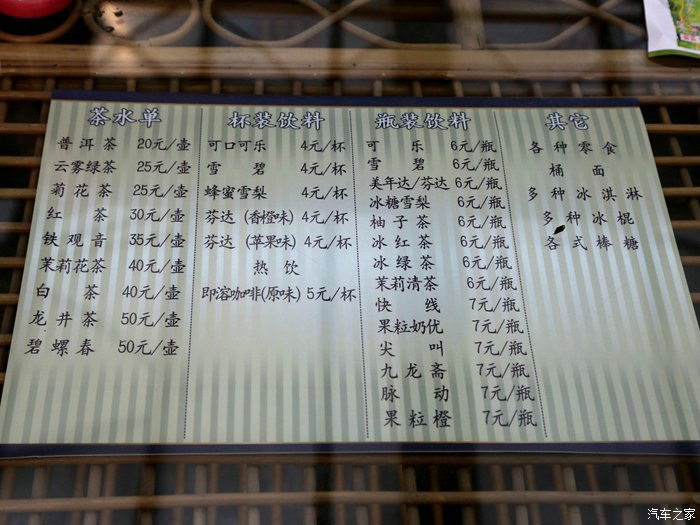 茶水单
普洱茶 20元/壶
云雾绿茶 25元/壶
菊花茶 25元/壶
红茶 30元/壶
铁观音 35元/壶
茉莉花茶 40元/壶
白茶 40元/壶
龙井茶 50元/壶
碧螺春 50元/壶
杯装饮料
可口可乐 4元/杯
雪碧 4元/杯
蜂蜜雪梨 4元/杯
芬达(香橙味) 4元/杯
芬达(苹果味) 4元/杯
热饮
即溶咖啡(原味) 5元/杯
瓶装饮料
可乐 6元/瓶
雪碧 6元/瓶
美年达/芬达 6元/瓶
冰糖雪梨 6元/瓶
柚子茶 6元/瓶
冰红茶 6元/瓶
冰绿茶 6元/瓶
茉莉清茶 6元/瓶
快线 7元/瓶
果粒奶优 7元/瓶
尖叫 7元/瓶
九龙斋 7元/瓶
脉动 7元/瓶
果粒橙 7元/瓶
其它
各种零食
桶面
多种冰淇淋
多种冰棍
各式棒糖
汽车之家